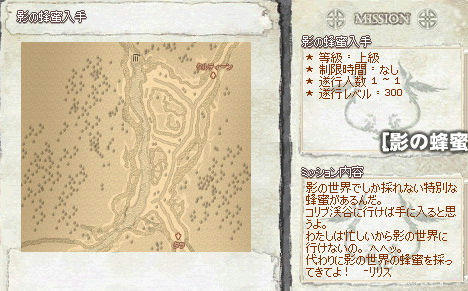 影の蜂蜜入手
タルティーン
タラ
MISSION
影の蜂蜜入手
★ 等級：上級
★ 制限時間：なし
★ 遂行人数 1 ~ 1
★ 遂行レベル：300
[影の蜂蜜
ミッション内容
影の世界でしか採れない特別な
蜂蜜があるんだ。
コリブ渓谷に行けば手に入ると思
うよ。
わたしは忙しいから影の世界に
行けないの。へへッ。
代わりに影の世界の蜂蜜を採っ
てきてよ！ -リリス